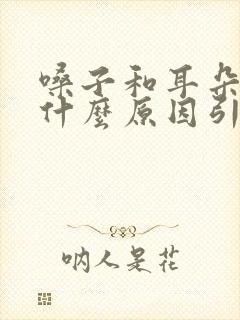 嗓子和耳朵
什麼原因引
吶人是花